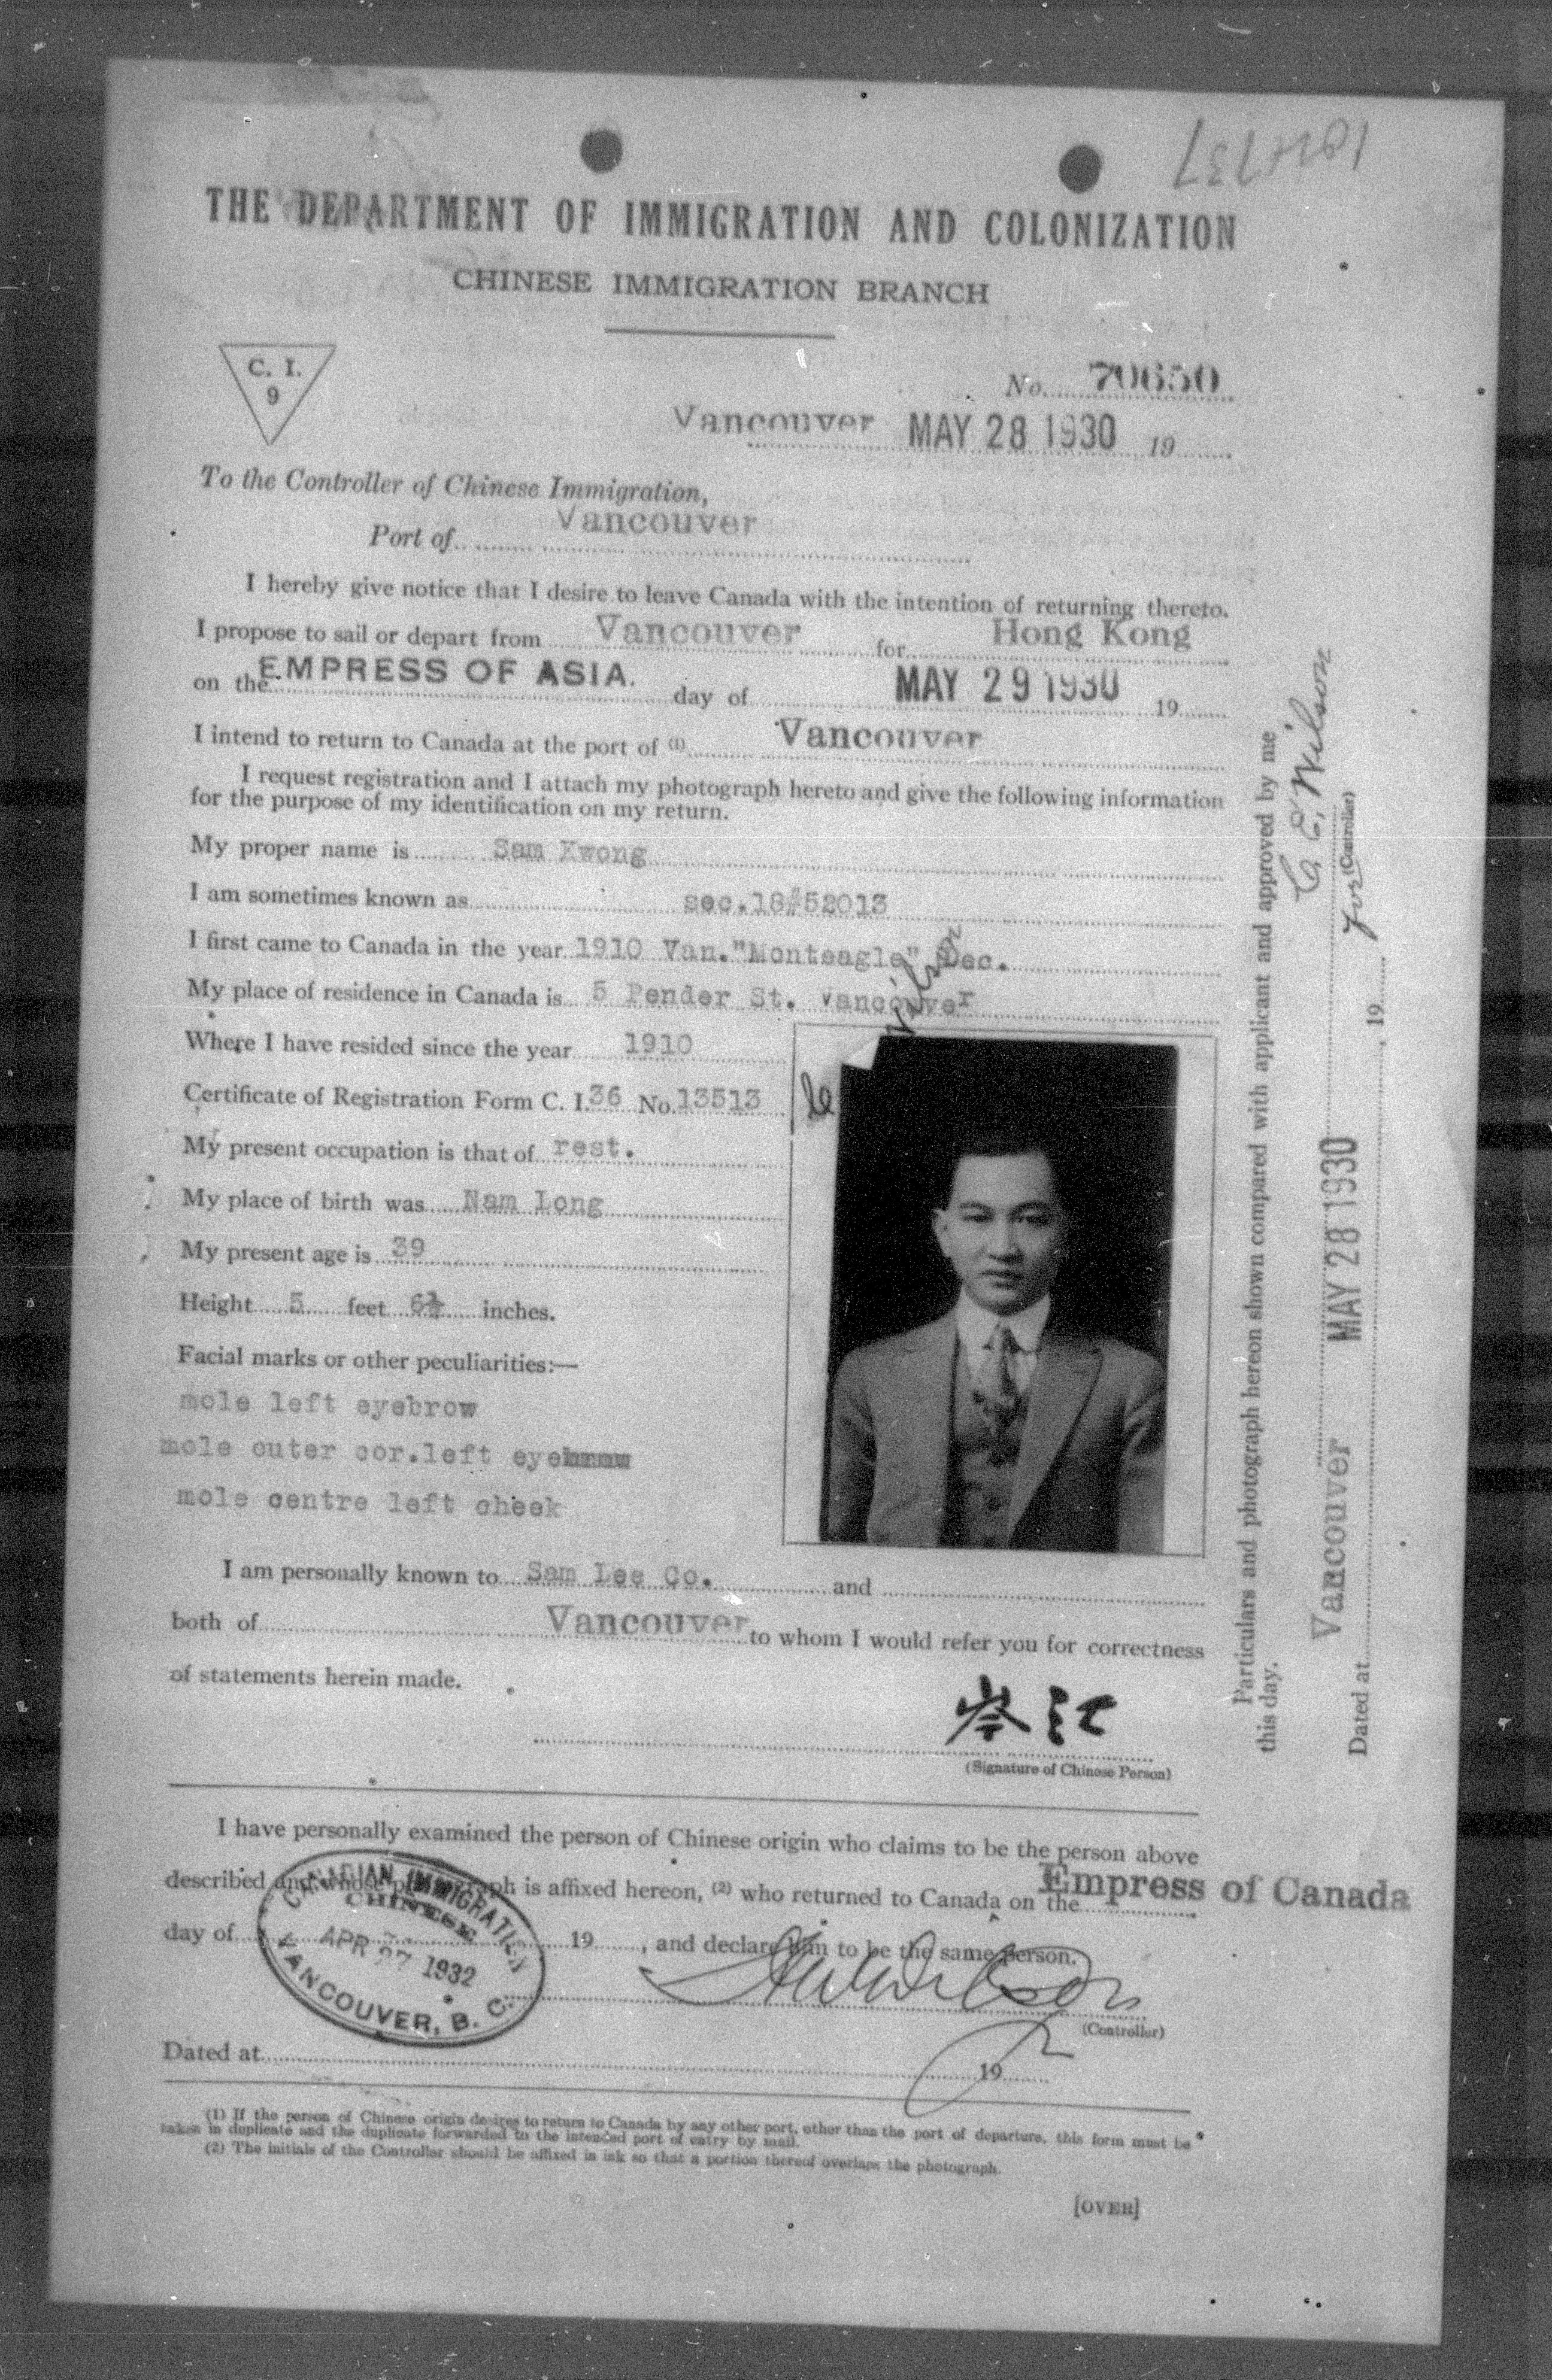 THE DEPARTMENT OF IMMIGRATION AND COLONIZATION
CHINESE IMMIGRATION BRANCH
C. I.
9
No. 70650
Vancouver MAY 28 1930 19
To the Controller of Chinese Immigration,
Port of Vancouver
I hereby give notice that I desire to leave Canada with the intention of returning thereto.
I propose to sail or depart from Vancouver for Hong Kong
on the EMPRESS OF ASIA. day of MAY 29 1930 19
I intend to return to Canada at the port of (1) Vancouver
I request registration and I attach my photograph hereto and give the following information
for the purpose of my identification on my return.
My proper name is Sam Kwong
I am sometimes known as sec.18#52013
I first came to Canada in the year 1910 Van. "Monteagle" Dec.
My place of residence in Canada is 5 Pender St. Vancouver
Where I have resided since the year 1910
Certificate of Registration Form C. I. 36 No. 13513
My present occupation is that of rest.
My place of birth was Nam Long
My present age is 39
Height 5 feet 6½ inches.
Facial marks or other peculiarities:—
mole left eyebrow
mole outer cor.left eye
mole centre left cheek
I am personally known to Sam Lee Co. and
both of Vancouver to whom I would refer you for correctness
of statements herein made.
(Signature of Chinese Person)
I have personally examined the person of Chinese origin who claims to be the person above
described and whose photograph is affixed hereon, (2) who returned to Canada on the Empress of Canada
day of 19 , and declare him to be the same person.
CANADIAN IMMIGRATION
CHINESE
APR 27 1932
VANCOUVER, B. C.
(Controller)
Dated at 19
(1) If the person of Chinese origin desires to return to Canada by any other port, other than the port of departure, this form must be
taken in duplicate and the duplicate forwarded to the intended port of entry by mail.
(2) The initials of the Controller should be affixed in ink so that a portion thereof overlaps the photograph.
[OVER]
Particulars and photograph hereon shown compared with applicant and approved by me
this day.
C. E. Wilson
for (Controller)
Dated at Vancouver MAY 28 1930 , 19